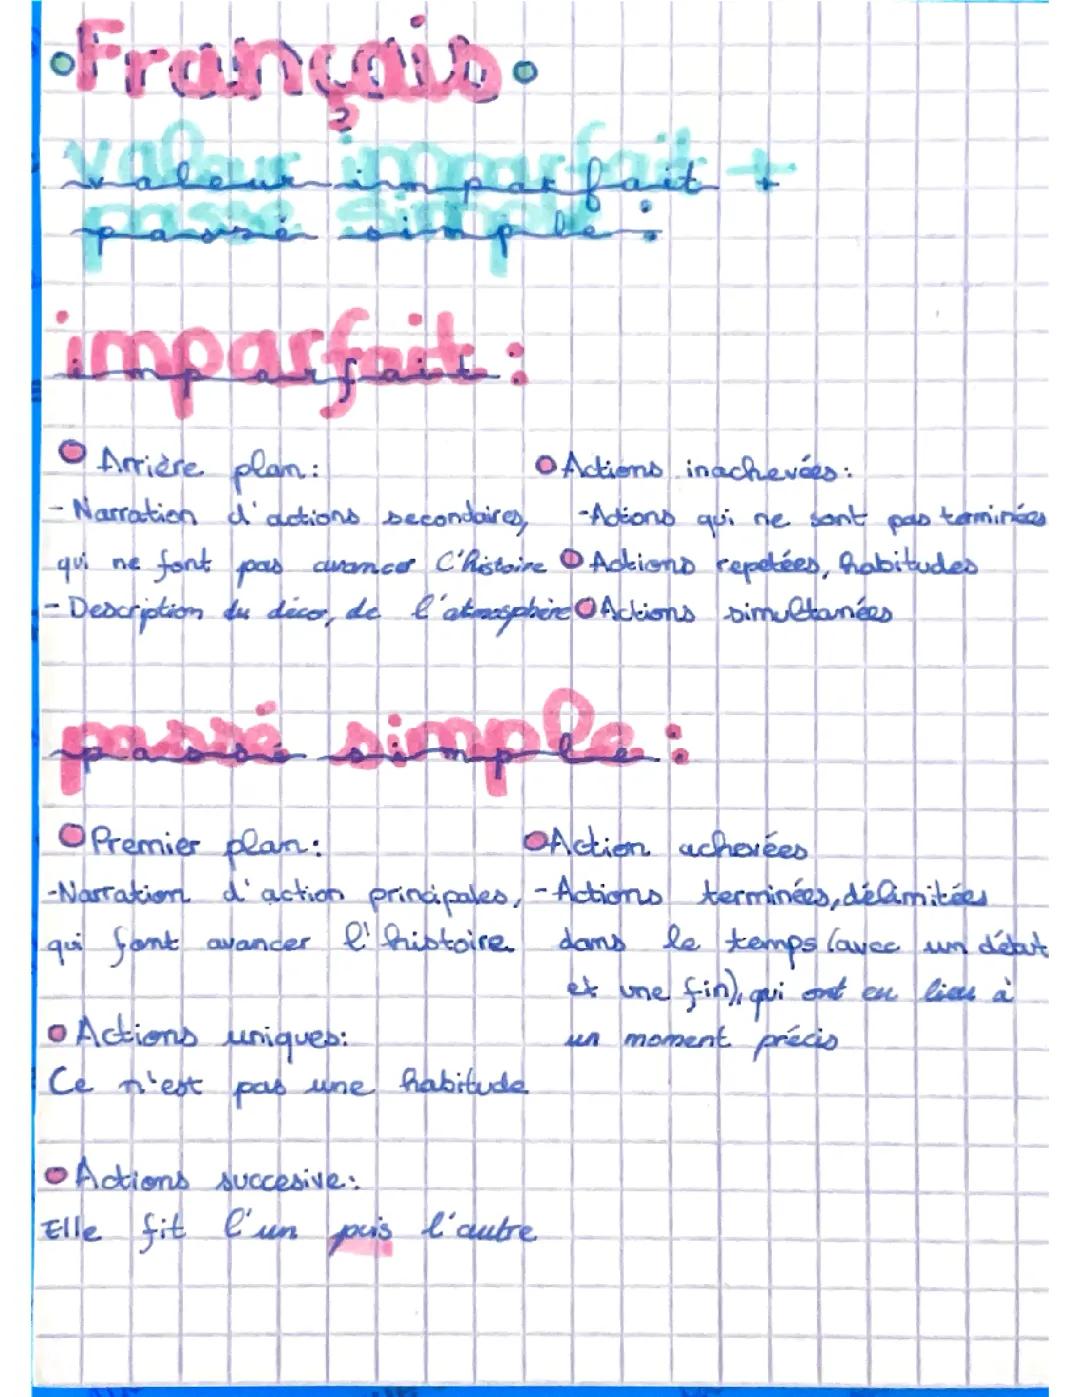 •Français•
valeur imparfait +
passé simple :
imparfait :
Arrière plan :
- Narration d'actions secondaires,
qui ne font pas avancer l'histoire
- Description du décor, de l'atmosphère
Actions inachevées :
-Actions qui ne sont pas terminées
Actions repetées, habitudes
Actions simultanées
passé simple :
Premier plan :
-Narration d'action principales,
qui font avancer l'histoire
Actions uniques :
Ce n'est pas une habitude
Actions succesive :
Elle fit l'un puis l'autre
Action achevées
-Actions terminées, délimitées
dans le temps (avec un début
et une fin), qui ont eu lieu à
un moment précis